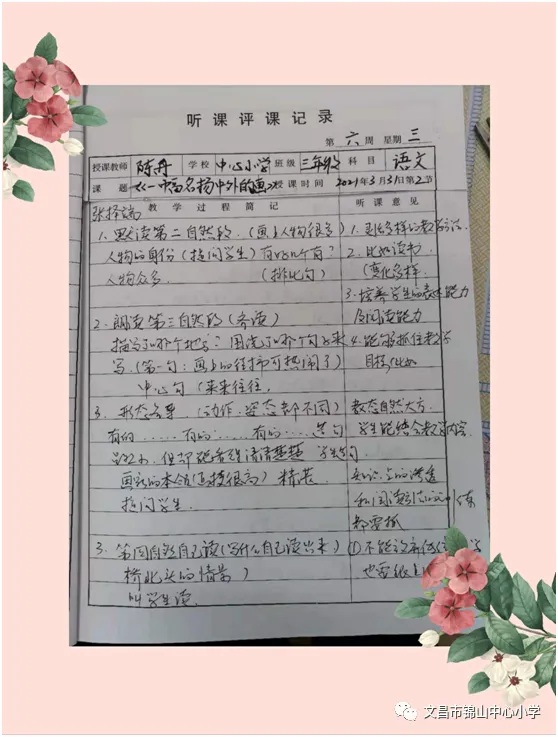 听课评课记录
第 六 周 星期 三
授课教师 陈丹 学校 中心小学 班级 三年级 科目 语文
课题 《一幅名扬中外的画》 授课时间 2021年3月31日第2节
教学过程简记 听课意见
张择端
1. 默读第二自然段. (画上人物很多)
人物的身份 (提问学生) 有哪几个有?
人物众多. (排比句)
2. 朗读第三自然段 (齐读)
描写了哪个地方? 用先了哪个句来
写. (第一句: 画上的街市可热闹了)
中心句 (来来往往,
3. 形态各异. (动作. 姿态都不同)
有的...... 有的...... 有的......
但却能看得清清楚楚
画家的本领
提问学生.
3. 第四自然自己读 (写什么自己读出来)
桥北头的情景)
叫学生读.
2. 比如读书.
变化多样.
3. 培养学生的表达能力
及阅读能力
4. 能够抓住教学
目标. 比如
教态自然大方.
学生能结合教学内容
知识点的渗透
都要抓
文昌市锦山中心小学